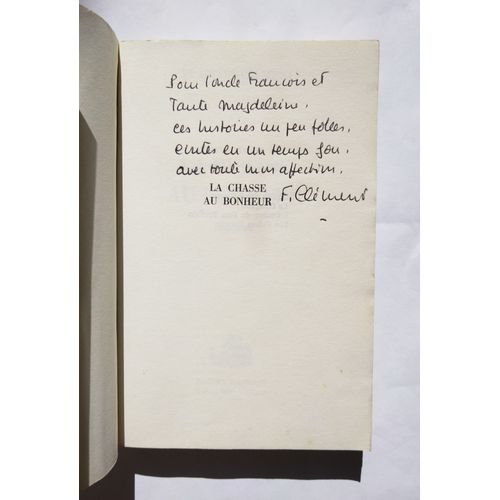 Pour l'oncle Francois et
Tante Magdeleine,
ces histoires un peu folles,
écrites en un temps fou,
avec toute mon affection,
LA CHASSE
AU BONHEUR
F. Clément